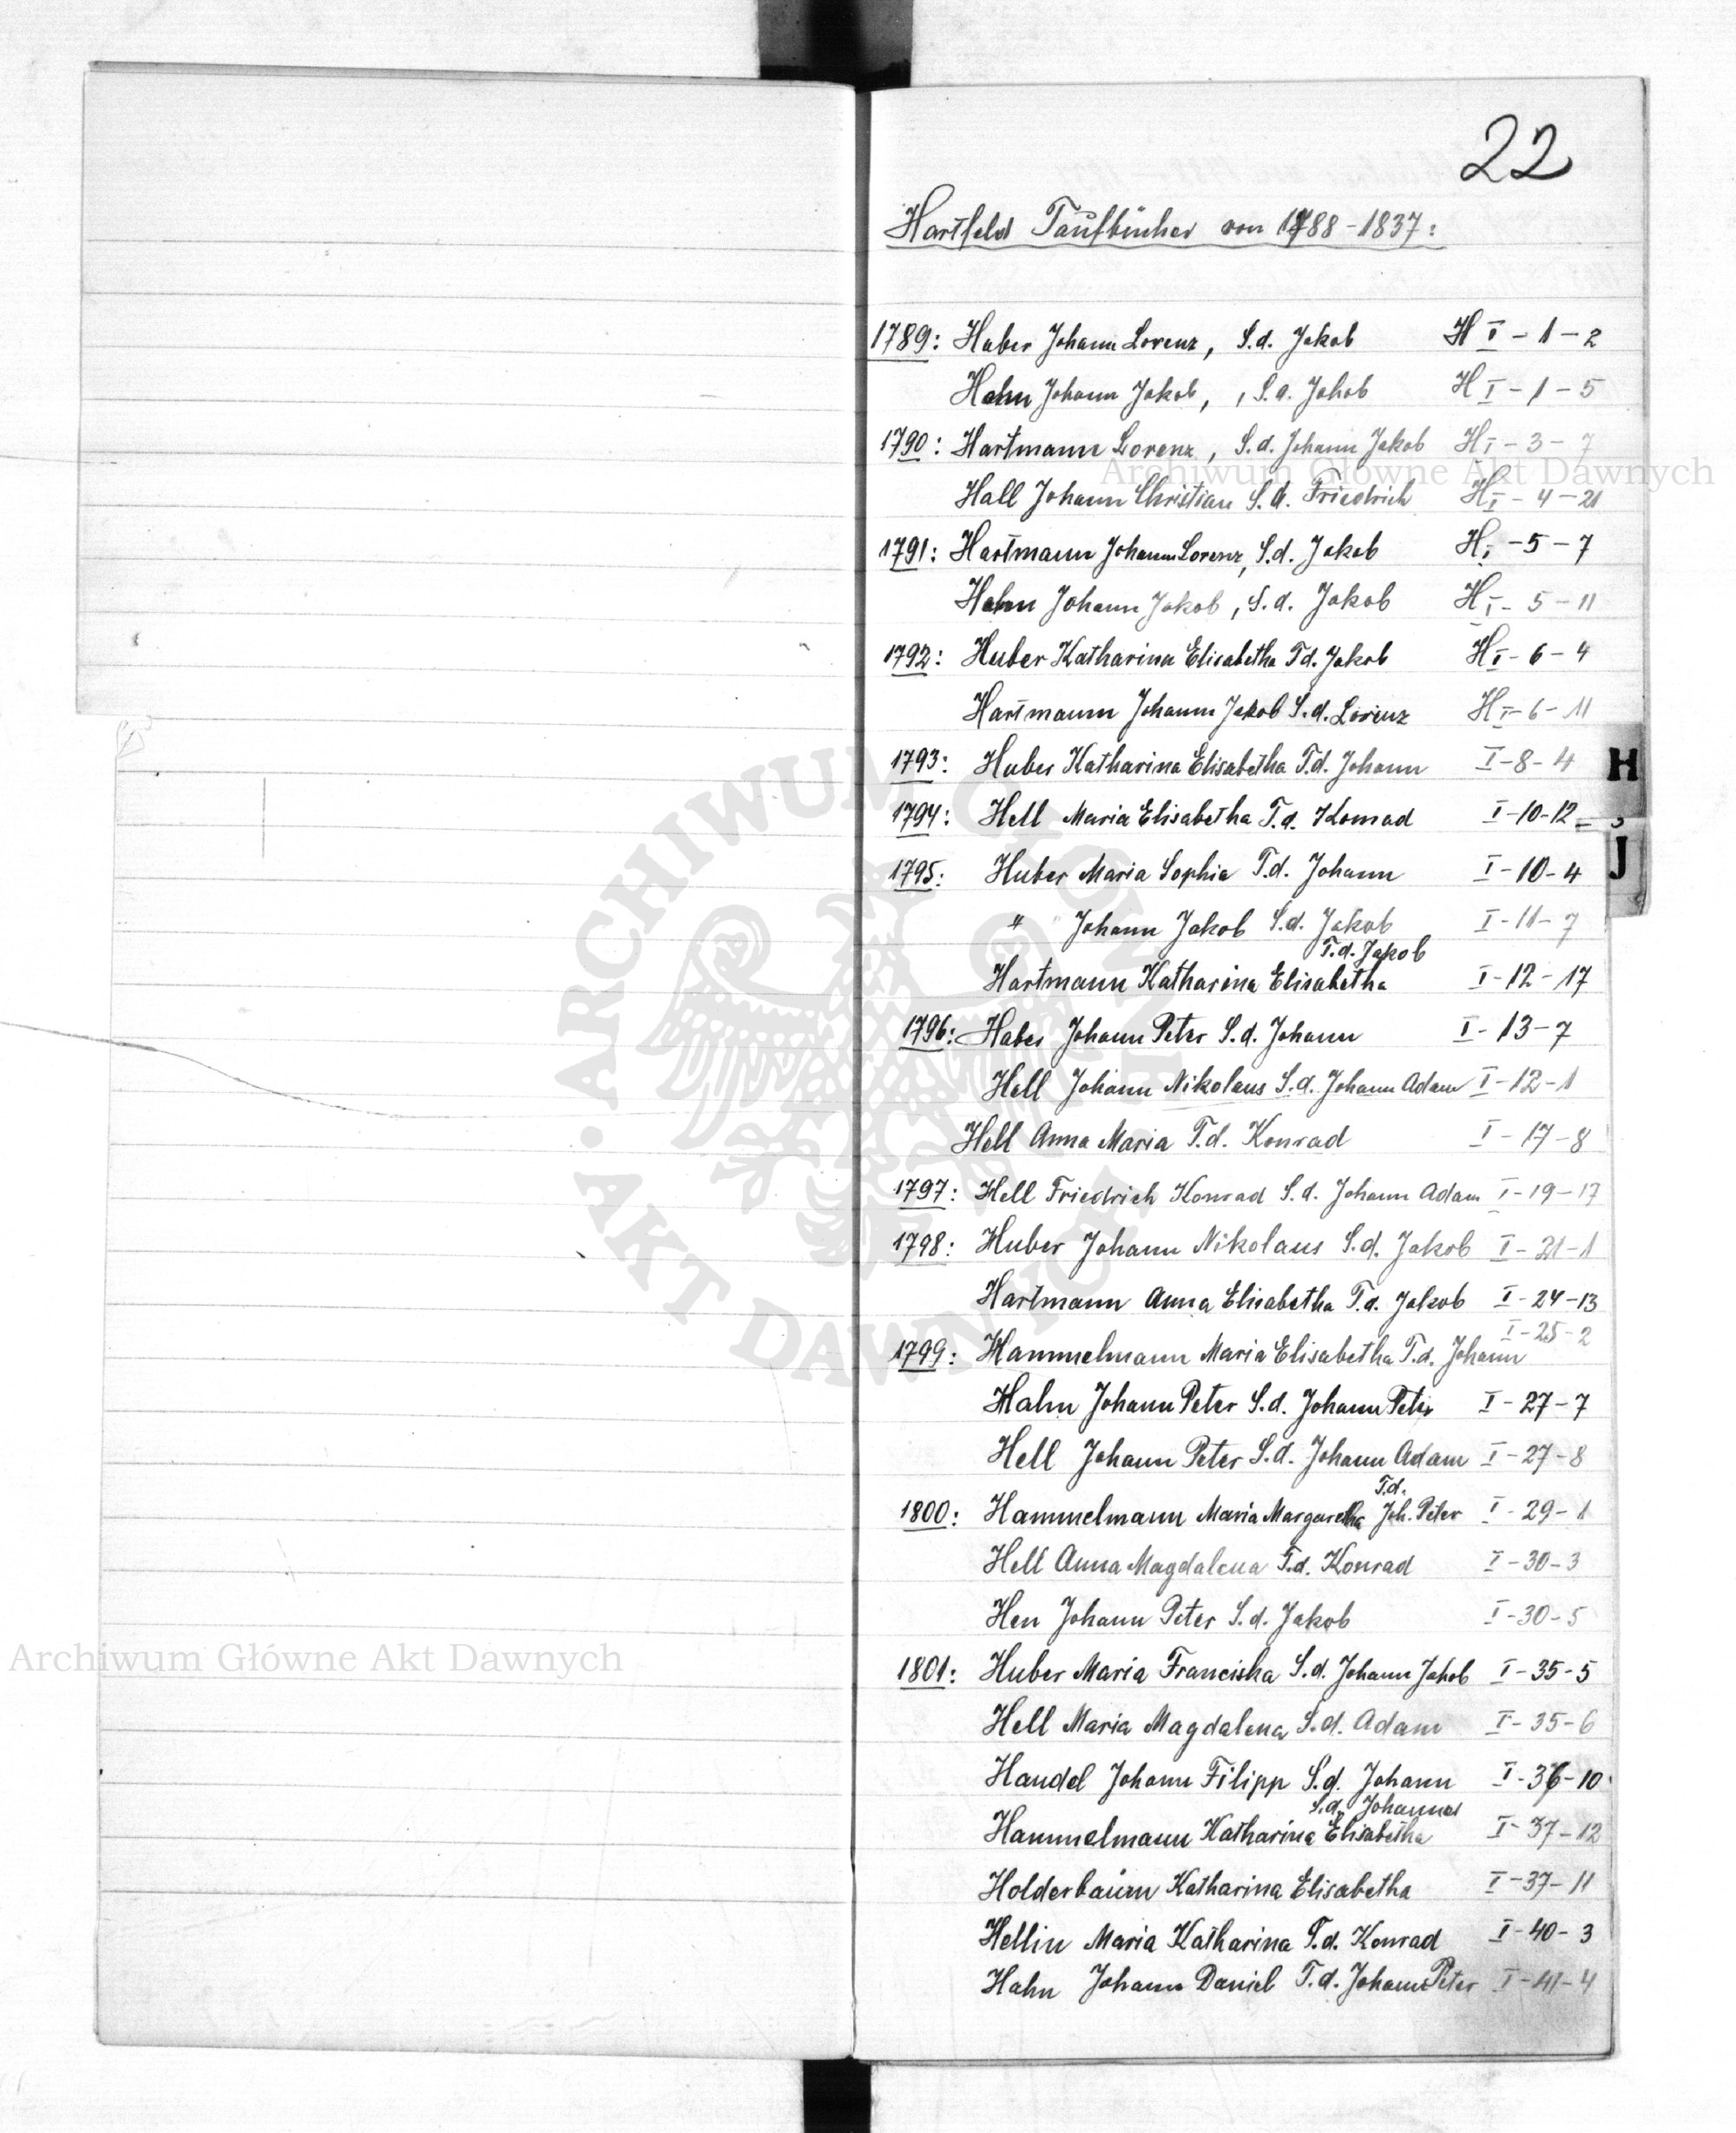 22
Hartfeld Taufbücher von 1788-1837:
1789: Huber Johann Lorenz, S.d. Jakob H I-1-2
Hahn Johann Jakob, , S.d. Jakob H I-1-5
1790: Hartmann Lorenz, S.d. Johann Jakob H I-3-7
Archiwum Główne Akt Dawnych
Hall Johann Christian S.d. Friedrich H I-4-21
1791: Hartmann Johann Lorenz, S.d. Jakob H I-5-7
Hahn Johann Jakob, S.d. Jakob H I-5-11
1792: Huber Katharina Elisabetha T.d. Jakob H I-6-4
Hartmann Johann Jakob S.d. Lorenz H I-6-11
1793: Huber Katharina Elisabetha T.d. Johann I-8-4
H
1794: Hell Maria Elisabetha T.d. Konrad I-10-12
J
1795: Huber Maria Sophia T.d. Johann I-10-4
" Johann Jakob S.d. Jakob I-11-7
T.d. Jakob
Hartmann Katharina Elisabetha I-12-17
1796: Huber Johann Peter S.d. Johann I-13-7
Hell Johann Nikolaus S.d. Johann Adam I-12-1
Hell Anna Maria T.d. Konrad I-17-8
1797: Hell Friedrich Konrad S.d. Johann Adam I-19-17
1798: Huber Johann Nikolaus S.d. Jakob I-21-1
Hartmann Anna Elisabetha T.d. Jakob I-24-13
I-25-2
1799: Hammelmann Maria Elisabetha T.d. Johann
Hahn Johann Peter S.d. Johann Peter I-27-7
Hell Johann Peter S.d. Johann Adam I-27-8
T.d.
1800: Hammelmann Maria Margaretha Joh. Peter I-29-1
Hell Anna Magdalena T.d. Konrad I-30-3
Hen Johann Peter S.d. Jakob I-30-5
Archiwum Główne Akt Dawnych
1801: Huber Maria Franciska S.d. Johann Jakob I-35-5
Hell Maria Magdalena S.d. Adam I-35-6
Handel Johann Filipp S.d. Johann I-36-10
S.d. Johannes
Hammelmann Katharina Elisabetha I-37-12
Holderbaum Katharina Elisabetha I-37-11
Hellin Maria Katharina T.d. Konrad I-40-3
Hahn Johann Daniel T.d. Johann Peter I-41-4
ARCHIWUM GŁÓWNE AKT DAWNYCH